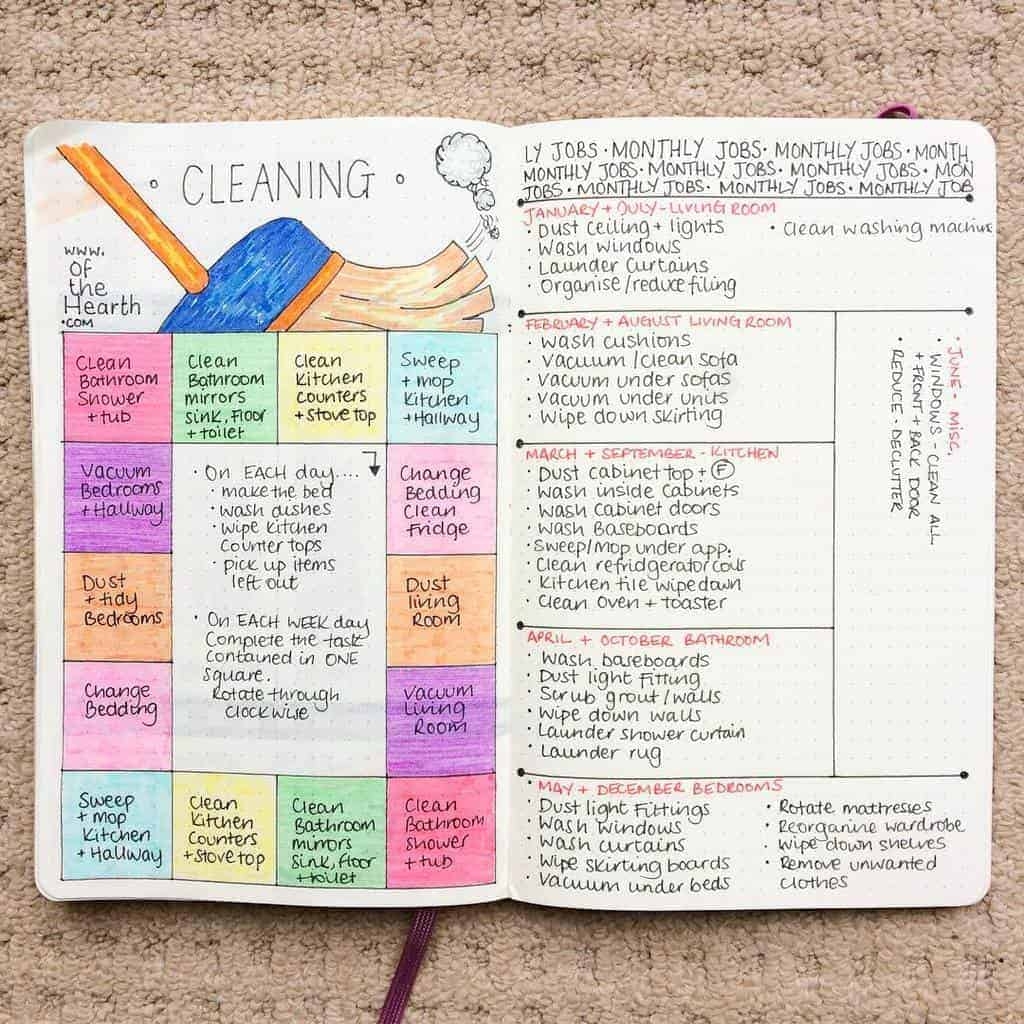 • CLEANING •
www.
of
the
Hearth
.COM
Clean
Bathroom
Shower
+ tub
Clean
Bathroom
mirrors
sink, floor
+ toilet
Clean
Kitchen
counters
+ stove top
Sweep
+ mop
Kitchen
+ Hallway
Vacuum
Bedrooms
+ Hallway
• On EACH day....
• make the bed
• wash dishes
• wipe kitchen
Counter tops
• pick up items
left out
• On EACH WEEK day
Complete the task
Contained in ONE
square.
Rotate through
clockwise
Change
Bedding
Clean
Fridge
Dust
+ tidy
Bedrooms
Dust
living
Room
Change
Bedding
Vacuum
Living
Room
Sweep
+ mop
Kitchen
+ Hallway
Clean
Kitchen
Counters
+ stove top
Clean
Bathroom
mirrors
Sink, floor
+ toilet
Clean
Bathroom
Shower
+ tub
LY JOBS • MONTHLY JOBS • MONTHLY JOBS • MONTH
MONTHLY JOBS • MONTHLY JOBS • MONTHLY JOBS • MON
JOBS • MONTHLY JOBS • MONTHLY JOBS • MONTHLY JOB
JANUARY + JULY - LIVING ROOM
• Dust Ceiling + lights
• Clean washing machine
• Wash windows
• Launder Curtains
• Organise / reduce filing
FEBRUARY + AUGUST LIVING ROOM
• Wash cushions
• Vacuum / clean sofa
• Vacuum under sofas
• Vacuum under units
• Wipe down skirting
MARCH + SEPTEMBER - KITCHEN
• Dust cabinet top + F
• Wash inside Cabinets
• Wash cabinet doors
• Wash Baseboards
• Sweep/Mop under app.
• Clean refridgerator coils
• Kitchen tile wipe down
• Clean Oven + toaster
APRIL + OCTOBER BATHROOM
• Wash baseboards
• Dust light Fitting
• Scrub grout / walls
• Wipe down walls
• Launder shower curtain
• Launder rug
• JUNE - MISC.
• WINDOWS - CLEAN ALL
+ FRONT + BACK DOOR
• REDUCE - DECLUTTER
• MAY + DECEMBER BEDROOMS
• Dust light Fittings
• Wash windows
• Wash curtains
• Wipe skirting boards
• Vacuum under beds
• Rotate mattresses
• Reorganine wardrobe
• Wipe down shelves
• Remove unwanted
clothes